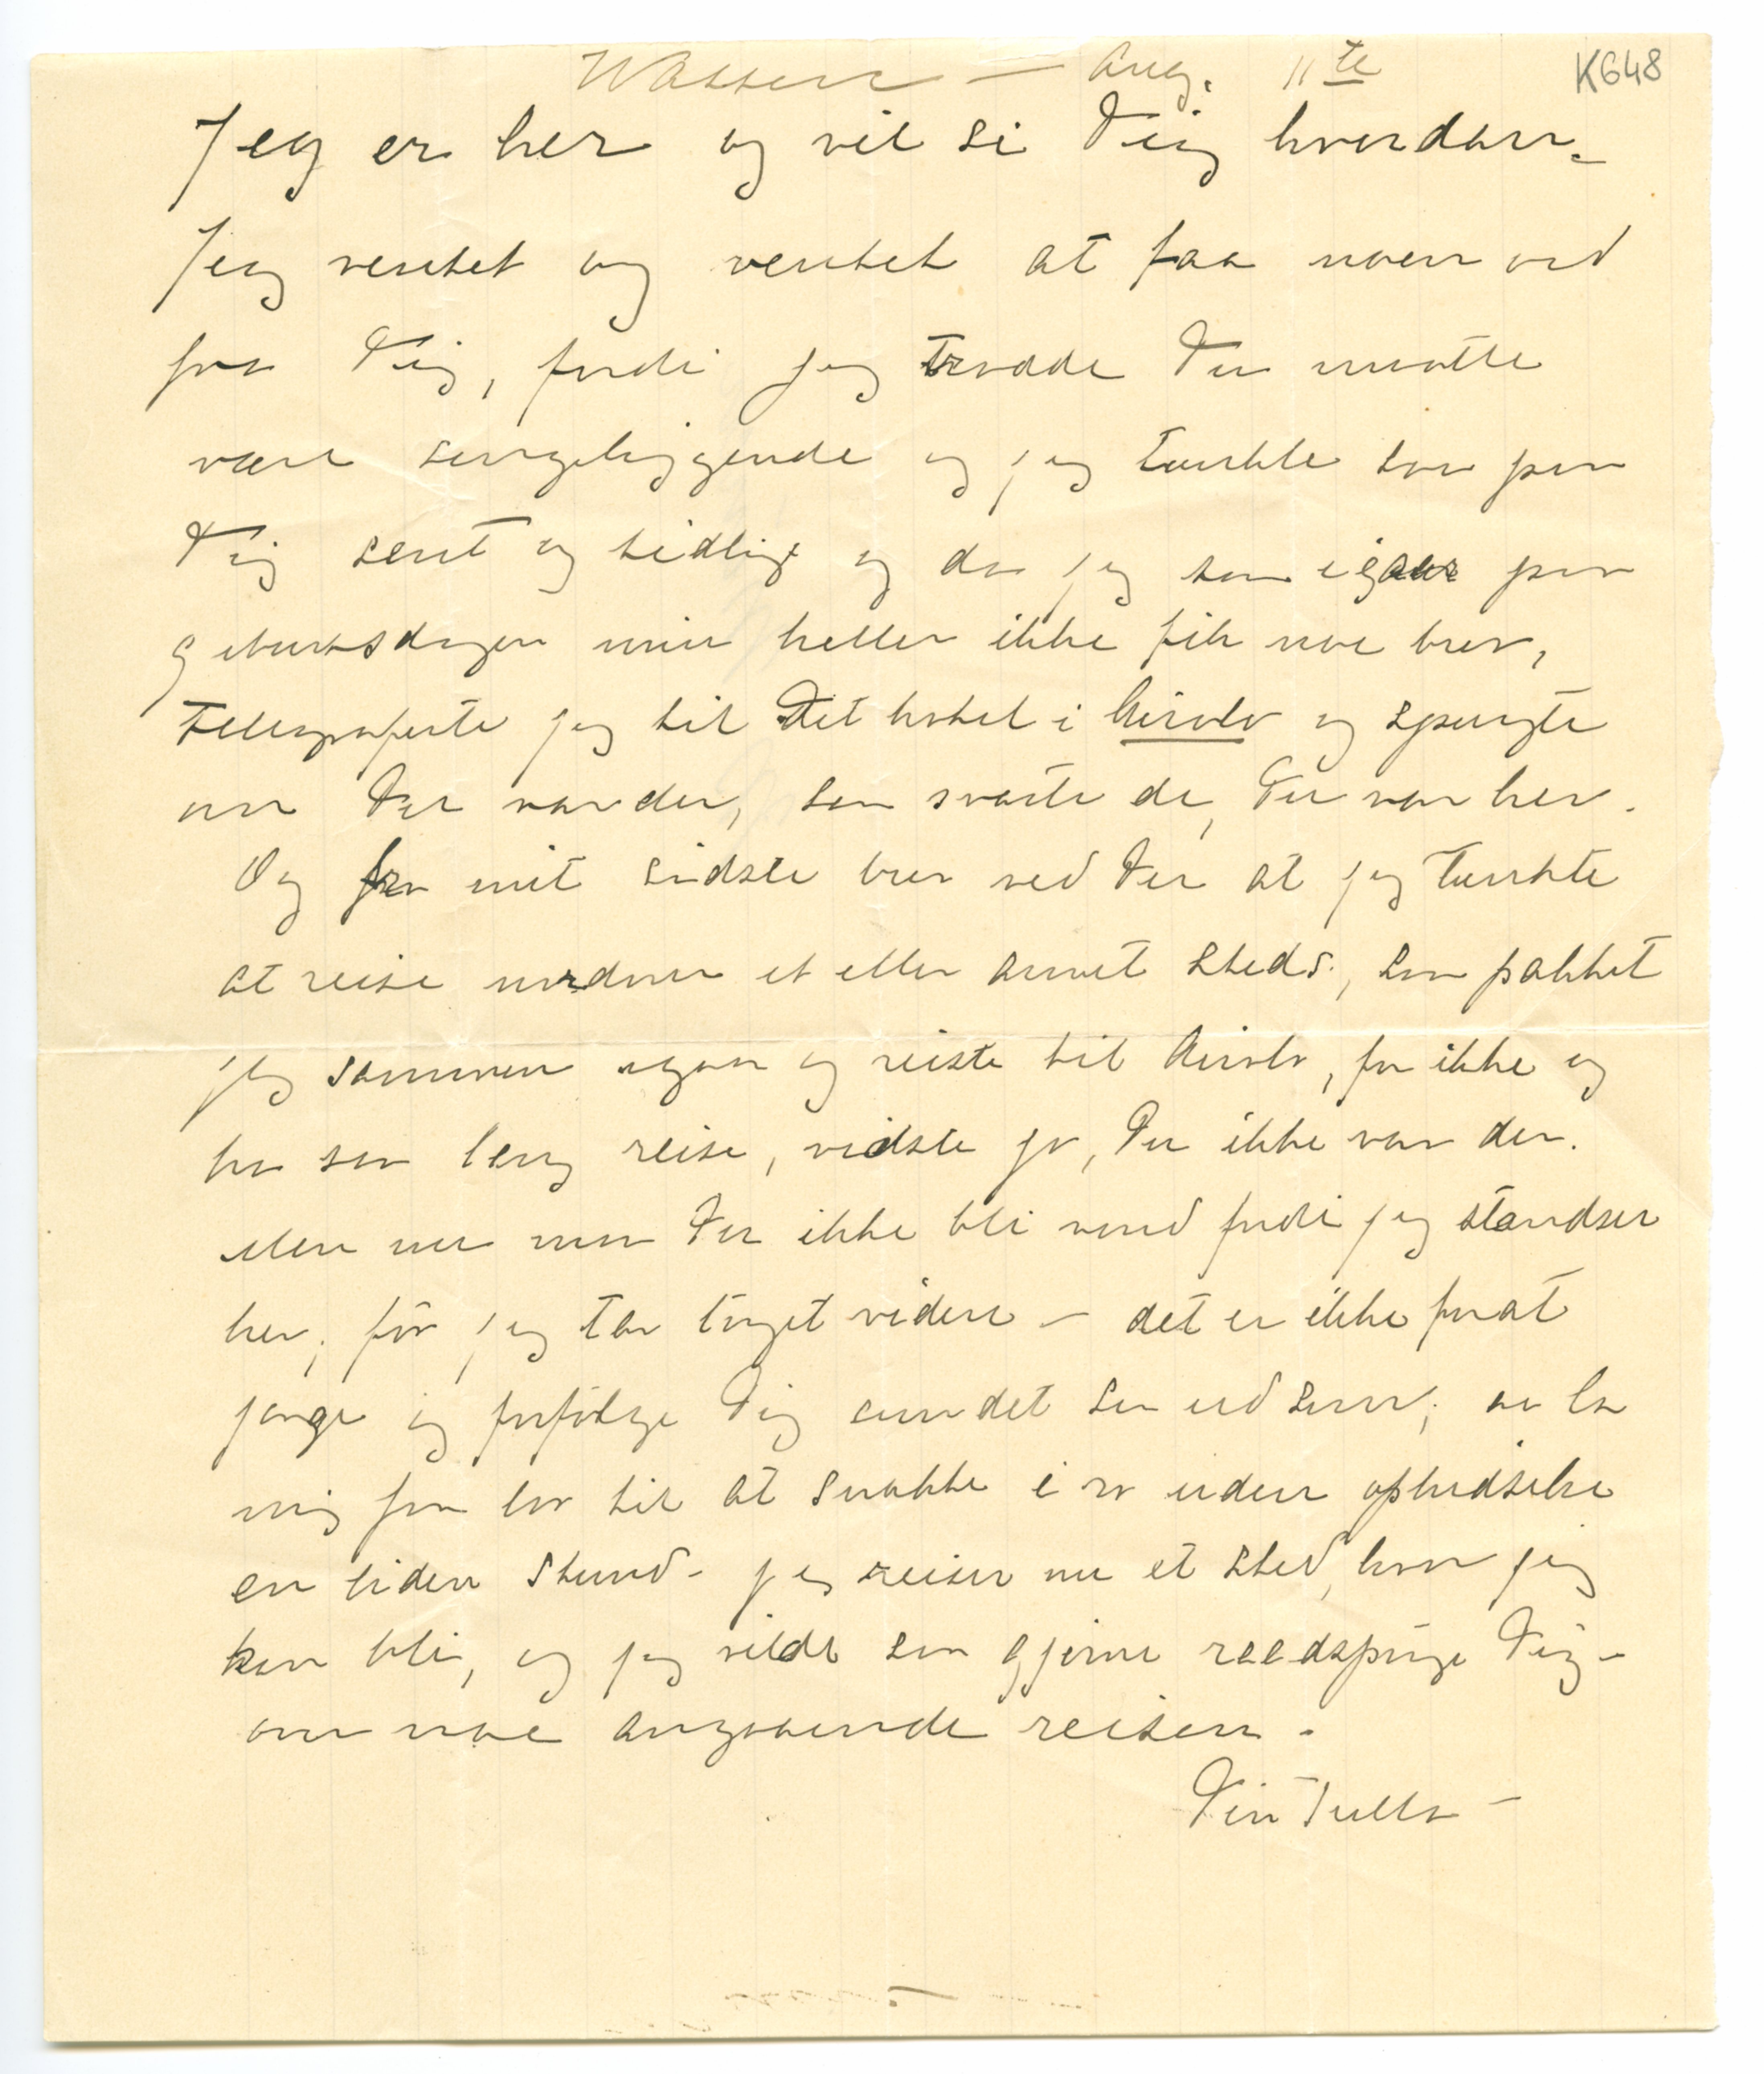 Wassen — Aug. 11te
K648
Jeg er her og vil si Dig hvordan.
Jeg ventet og ventet at faa noen ord
fra Dig, fordi jeg trodde Du maatte
være sengeliggende og jeg tænkte saa paa
Dig sent og tidlig og da jeg saa igaar paa
geburtsdagen min heller ikke fik noe brev,
telegraferte jeg til Det hotel i Airolo og spurgte
om Du var der, saa svarte de, Du var her.
Og fra mit sidste brev ved Du at jeg tænkte
at reise nordover et eller annet steds, saa pakket
jeg sammen igaar og reiste til Airolo, for ikke og
ha saa lang reise, vidste jo, Du ikke var der.
Men nu maa Du ikke bli vond fordi jeg standser
her, før jeg tar toget videre – det er ikke forat
jage og forfølge Dig om det ser ud som; aa la
mig faa lov til at snakke i ro uden ophidselse
en liden stund – jeg reiser nu et sted, hvor jeg
kan bli, og jeg vilde saa gjerne raadspørge Dig –
om noe angaaende reisen.
Din Tulla –